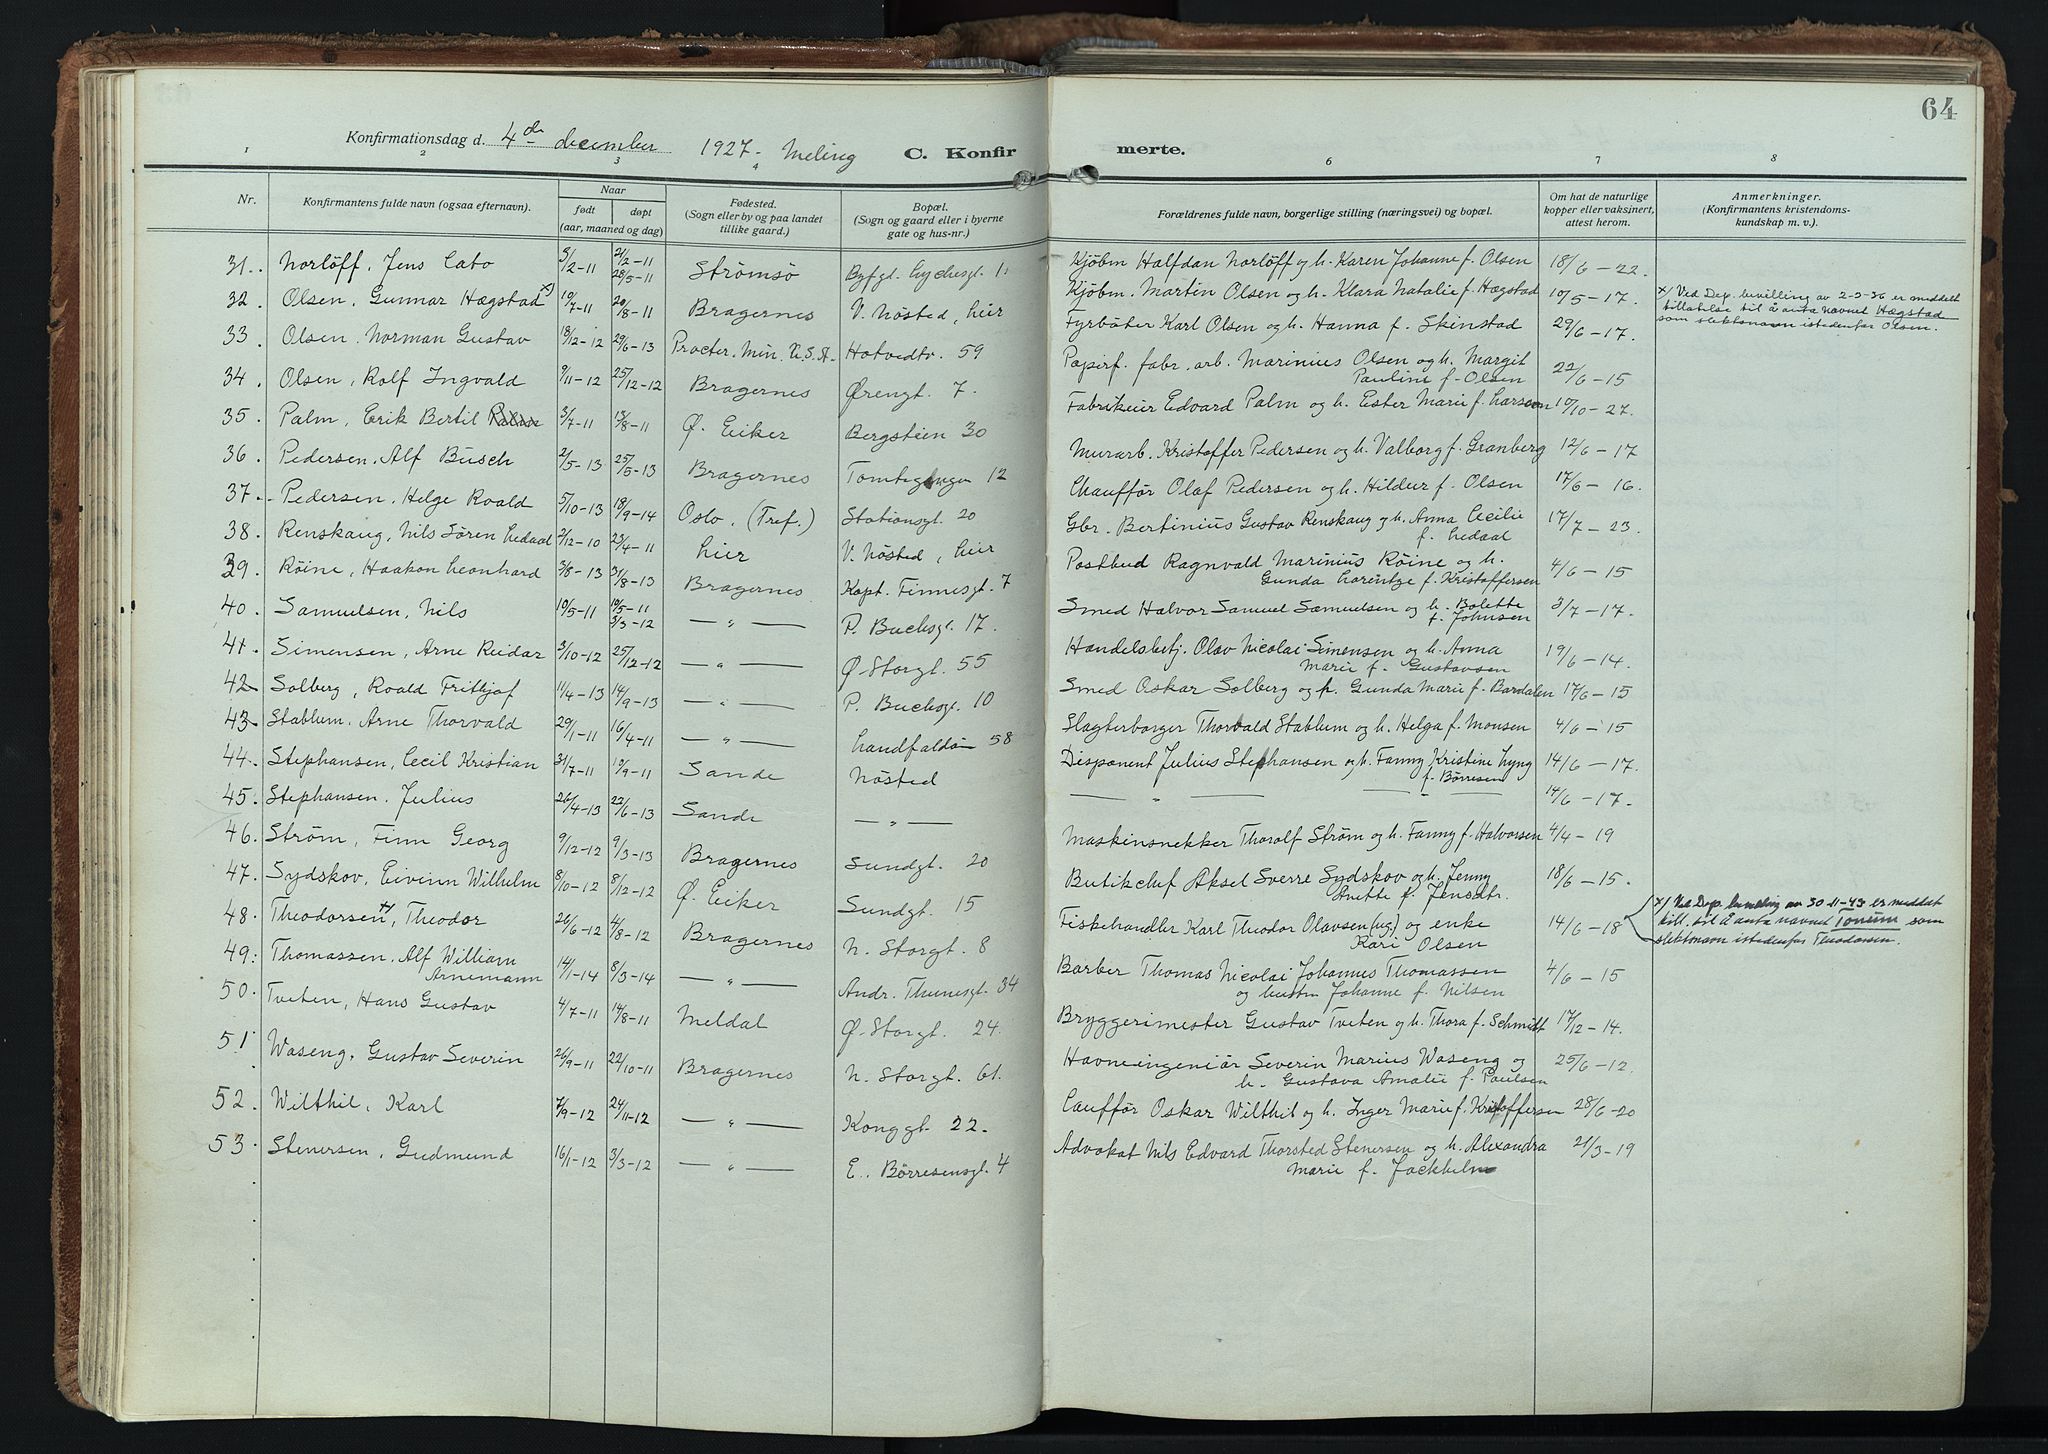 64
Konfirmationsdag d. 4de december 1927 - Meling C. Konfirmerte.
1 2 3 4 6 7 8
Nr. Konfirmantens fulde navn (ogsaa efternavn). Naar født døpt (aar, maaned og dag) Fødested. (Sogn eller by og paa landet tillike gaard.) Bopæl. (Sogn og gaard eller i byerne gate og hus-nr.) Forældrenes fulde navn, borgerlige stilling (næringsvei) og bopæl. Om hat de naturlige kopper eller vaksinert, attest herom. Anmerkninger. (Konfirmantens kristendomskundskap m. v.).
31. Norløff, Jens Cato 5/2-11 21/2-11 28/5-11 Strømsø Byfgd. Lychesgt. 11 Kjøbm Halfdan Norløff og h. Karen Johanne f. Olsen 18/6-22.
32. Olsen, Gunnar Hægstad x) 19/7-11 20/8-11 Bragernes V. Nøsted, Lier Kjøbm. Martin Olsen og h. Klara Natalie f. Hægstad 10/5-17. x/ Ved Dep. bevilling av 2-3-36 er meddelt tillatelse til å anta navnet Hægstad som slektsnavn istedenfor Olsen.
33 Olsen, Norman Gustav 18/12-12 29/6-13 Procter. Min. U.S.A. Hotvedtv. 59 Fyrbøter Karl Olsen og h. Hanna f. Skinstad 29/6-17.
34. Olsen, Rolf Ingvald 9/11-12 25/12-12 Bragernes Ørengt. 7. Papirf. fabr. arb. Marinius Olsen og h. Margit Pauline f. Olsen 22/6-15
35. Palm, Erik Bertil 3/7-11 13/8-11 Ø. Eiker Bergstien 30 Fabrikeier Edvard Palm og h. Ester Marie f. Larsson 10/10-27.
36. Pedersen, Alf Busch 2/5-13 25/5-13 Bragernes Tomtegt 12 Murarb. Kristoffer Pedersen og h. Valborg f. Granberg 12/6-17
37. Pedersen, Helge Roald 5/10-13 18/9-14 Oslo, (Tref.) Stationsgt. 20 Chauffør Olaf Pedersen og h. Hildur f. Olsen 17/6-16.
38. Renskaug, Nils Søren Ledaal 2/12-10 23/4-11 Lier V. Nøsted, Lier Gbr. Bertinius Gustav Renskaug og h. Anna Cecilie f. Ledaal 17/7-23.
39. Røine, Haakon Leonhard 3/8-13 31/8-13 Bragernes Kapt. Finnesgt. 7 Postbud Ragnvald Marinius Røine og h. Gunda Lorentze f. Kristoffersen 4/6-15
40. Samuelsen, Nils 10/5-11 19/5-11 3/3-12 — " — P. Buchsgt. 17. Smed Halvor Samuel Samuelsen og h. Bolette f. Johnsen 3/7-17.
41. Simensen, Arne Reidar 3/10-12 25/12-12 — " — Ø. Storgt. 55 Handelsbetj. Olav Nicolai Simensen og h. Anna Marie f. Gustavsen 19/6-14.
42. Solberg, Roald Frithjof 11/4-13 14/9-13 — " — P. Buchsgt. 10 Smed Oskar Solberg og h. Gunda Marie f. Bardalen 17/6-15
43. Stablum, Arne Thorvald 29/1-11 16/4-11 — " — Landfaldøn 58 Slagterborger Thorvald Stablum og h. Helga f. Monsen 4/6-15
44. Stephansen, Cecil Kristian 31/7-11 10/9-11 Sande Nøsted Disponent Julius Stephansen og h. Fanny Kristine Lyng f. Børresen 14/6-17.
45. Stephansen, Julius 26/4-13 23/6-13 Sande — " — — " — — " — 14/6-17.
46. Strøm, Finn Georg 9/12-12 9/3-13 Bragernes Sundgt. 20 Maskinsnekker Thorolf Strøm og h. Fanny f. Halvorsen 4/4-19
47. Sydskov, Eivinn Wilhelm 8/10-12 8/12-12 Ø. Eiker Sundgt. 15 Butikchef Aksel Sverre Sydskov og h. Jenny Anette f. Jensdtr. 18/6-15.
48. Theodorsen x), Theodor 26/6-12 4/8-12 Bragernes N. Storgt. 8 Fiskehandler Karl Theodor Olavsen (ug.) og enke Kari Olsen 14/6-18 x/ Ved Dep. bevilling av 30-11-43 er meddelt till. til å anta navnet Tonum som slektsnavn istedenfor Theodorsen.
49. Thomassen, Alf William Arnemann 14/1-14 8/3-14 — " — Andr. Thunesgt. 34 Barber Thomas Nicolai Johannus Thomassen og hustru Johanne f. Nilsen 4/6-15
50. Tveten, Hans Gustav 4/7-11 14/8-11 Meldal Ø. Storgt. 24. Bryggerimester Gustav Tveten og h. Thora f. Schmidt 17/12-14.
51. Waseng, Gustav Severin 26/9-11 22/10-11 Bragernes N. Storgt. 61. Havneingeniør Severin Marius Waseng og h. Gustava Amalie f. Paulsen 25/6-12.
52. Wilthil, Karl 7/9-12 24/11-12 — " — Konggt. 22. Cauffør Oskar Wilthil og h. Inger Marie f. Kristoffersen 28/6-20
53. Stenersen, Gudmund 16/1-12 3/3-12 — " — E. Børresensgt. 4 Advokat Nils Edvard Thorsted Stenersen og h. Alexandra Marie f. Jackhelm 21/3-19